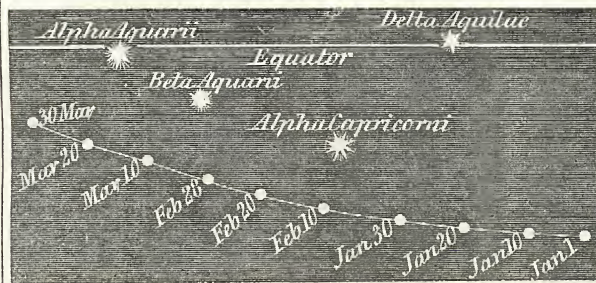 Delta Aquilae
Alpha Aquarii
Equator
Beta Aquarii
Alpha Capricorni
30 Mar
Mar 20
Mar 10
Feb 28
Feb 20
Feb 10
Jan 30
Jan 20
Jan 10
Jan 1